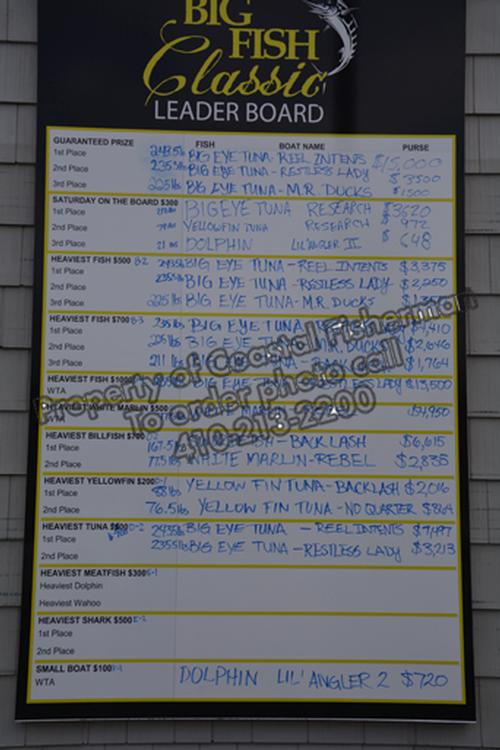 BIG
FISH
Classic
LEADER BOARD
GUARANTEED PRIZE FISH BOAT NAME PURSE
1st Place BIG EYE TUNA - REEL INTENTS $15,000
2nd Place BIG EYE TUNA - RESTLESS LADY $3500
3rd Place 225 lbs BIG EYE TUNA - M.R. DUCKS $1500
SATURDAY ON THE BOARD $300
1st Place BIG EYE TUNA RESEARCH $3620
2nd Place YELLOWFIN TUNA RESEARCH $972
3rd Place DOLPHIN LIL'ANGLER II $648
HEAVIEST FISH $500
1st Place BIG EYE TUNA - REEL INTENTS $3,375
2nd Place BIG EYE TUNA - RESTLESS LADY $2,250
3rd Place 225 lbs BIG EYE TUNA - M.R. DUCKS
HEAVIEST FISH $700
1st Place BIG EYE TUNA $4,410
2nd Place BIG EYE M.R. DUCKS $2,646
3rd Place 211 lbs BIG EYE TUNA $1,764
HEAVIEST FISH $1000
WTA BIG EYE TUNA RESTLESS LADY $13,500
HEAVIEST WHITE MARLIN $500
$4,950
HEAVIEST BILLFISH $700
1st Place BACKLASH $6,615
2nd Place WHITE MARLIN - REBEL $2,835
HEAVIEST YELLOWFIN $200
1st Place 88 lbs YELLOW FIN TUNA - BACKLASH $2,016
2nd Place 76.5 lbs YELLOW FIN TUNA - NO QUARTER $864
HEAVIEST TUNA
1st Place BIG EYE TUNA - REEL INTENTS $7,497
2nd Place 235.5 lbs BIG EYE TUNA - RESTLESS LADY $3,213
HEAVIEST MEATFISH $300
Heaviest Dolphin
Heaviest Wahoo
HEAVIEST SHARK $500
1st Place
2nd Place
SMALL BOAT $100
WTA DOLPHIN LIL' ANGLER 2 $720
Property of Coastal Fisherman
To order photo call
410-213-2200